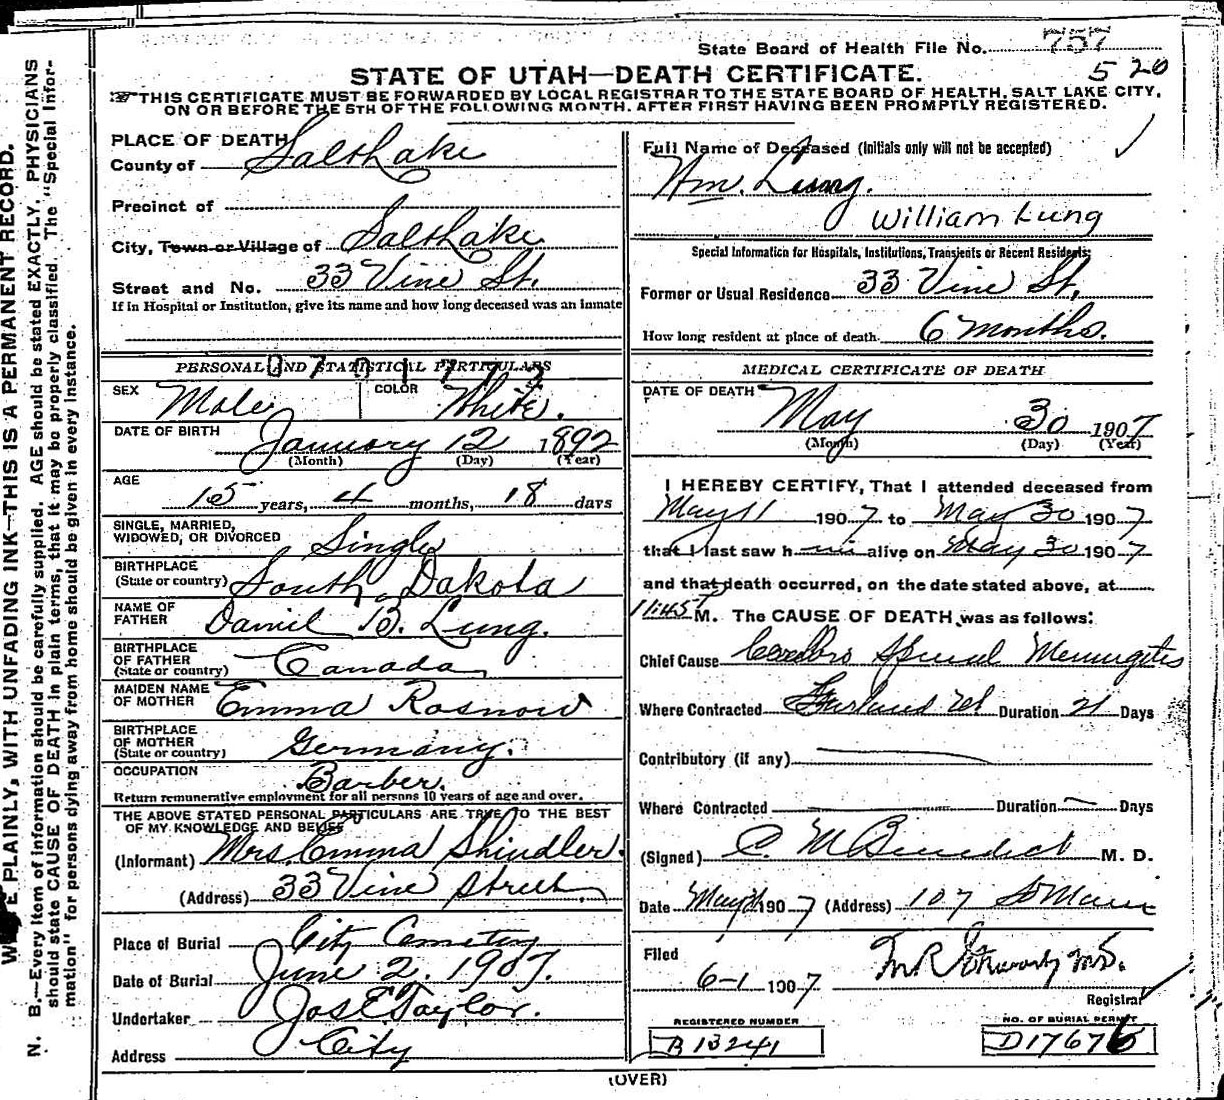 State Board of Health File No. 757
5 20
STATE OF UTAH—DEATH CERTIFICATE.
THIS CERTIFICATE MUST BE FORWARDED BY LOCAL REGISTRAR TO THE STATE BOARD OF HEALTH, SALT LAKE CITY,
ON OR BEFORE THE 5TH OF THE FOLLOWING MONTH. AFTER FIRST HAVING BEEN PROMPTLY REGISTERED.
PLAINLY, WITH UNFADING INK—THIS IS A PERMANENT RECORD.
N. B.—Every item of information should be carefully supplied. AGE should be stated EXACTLY. PHYSICIANS
should state CAUSE OF DEATH in plain terms, that it may be properly classified. The "Special Infor-
mation" for persons dying away from home should be given in every instance.
PLACE OF DEATH
County of Salt Lake
Precinct of
City, Town or Village of Salt Lake
Street and No. 33 Vine St.
If in Hospital or Institution, give its name and how long deceased was an inmate
PERSONAL AND STATISTICAL PARTICULARS
SEX Male COLOR White.
DATE OF BIRTH January 12 1892
(Month) (Day) (Year)
AGE 15 years, 4 months, 18 days
SINGLE, MARRIED,
WIDOWED, OR DIVORCED Single
BIRTHPLACE
(State or country) South Dakota
NAME OF
FATHER Daniel B. Lung.
BIRTHPLACE
OF FATHER
(State or country) Canada
MAIDEN NAME
OF MOTHER Emma Rosnow
BIRTHPLACE
OF MOTHER
(State or country) Germany.
OCCUPATION Barber.
Return remunerative employment for all persons 10 years of age and over.
THE ABOVE STATED PERSONAL PARTICULARS ARE TRUE TO THE BEST
OF MY KNOWLEDGE AND BELIEF
(Informant) Mrs. Emma Shindler.
(Address) 33 Vine Street
Place of Burial City Cemetery
Date of Burial June 2. 1907.
Undertaker Jos E Taylor.
Address City
Full Name of Deceased (Initials only will not be accepted)
Wm. Lung.
William Lung
Special Information for Hospitals, Institutions, Transients or Recent Residents:
Former or Usual Residence 33 Vine St,
How long resident at place of death. 6 months.
MEDICAL CERTIFICATE OF DEATH
DATE OF DEATH May 30 1907
(Month) (Day) (Year)
I HEREBY CERTIFY, That I attended deceased from
May 11 1907 to May 30 1907
that I last saw him alive on May 30 1907
and that death occurred, on the date stated above, at
11:45 P M. The CAUSE OF DEATH was as follows:
Chief Cause Cerebro Spinal Meningitis
Where Contracted Duration 21 Days
Contributory (if any)
Where Contracted Duration Days
(Signed) C. M Benedict M. D.
Date May 1907 (Address) 107 S Main
Filed
6-1 1907
Registrar
REGISTERED NUMBER
B 13241
NO. OF BURIAL PERMIT
D17676
(OVER)